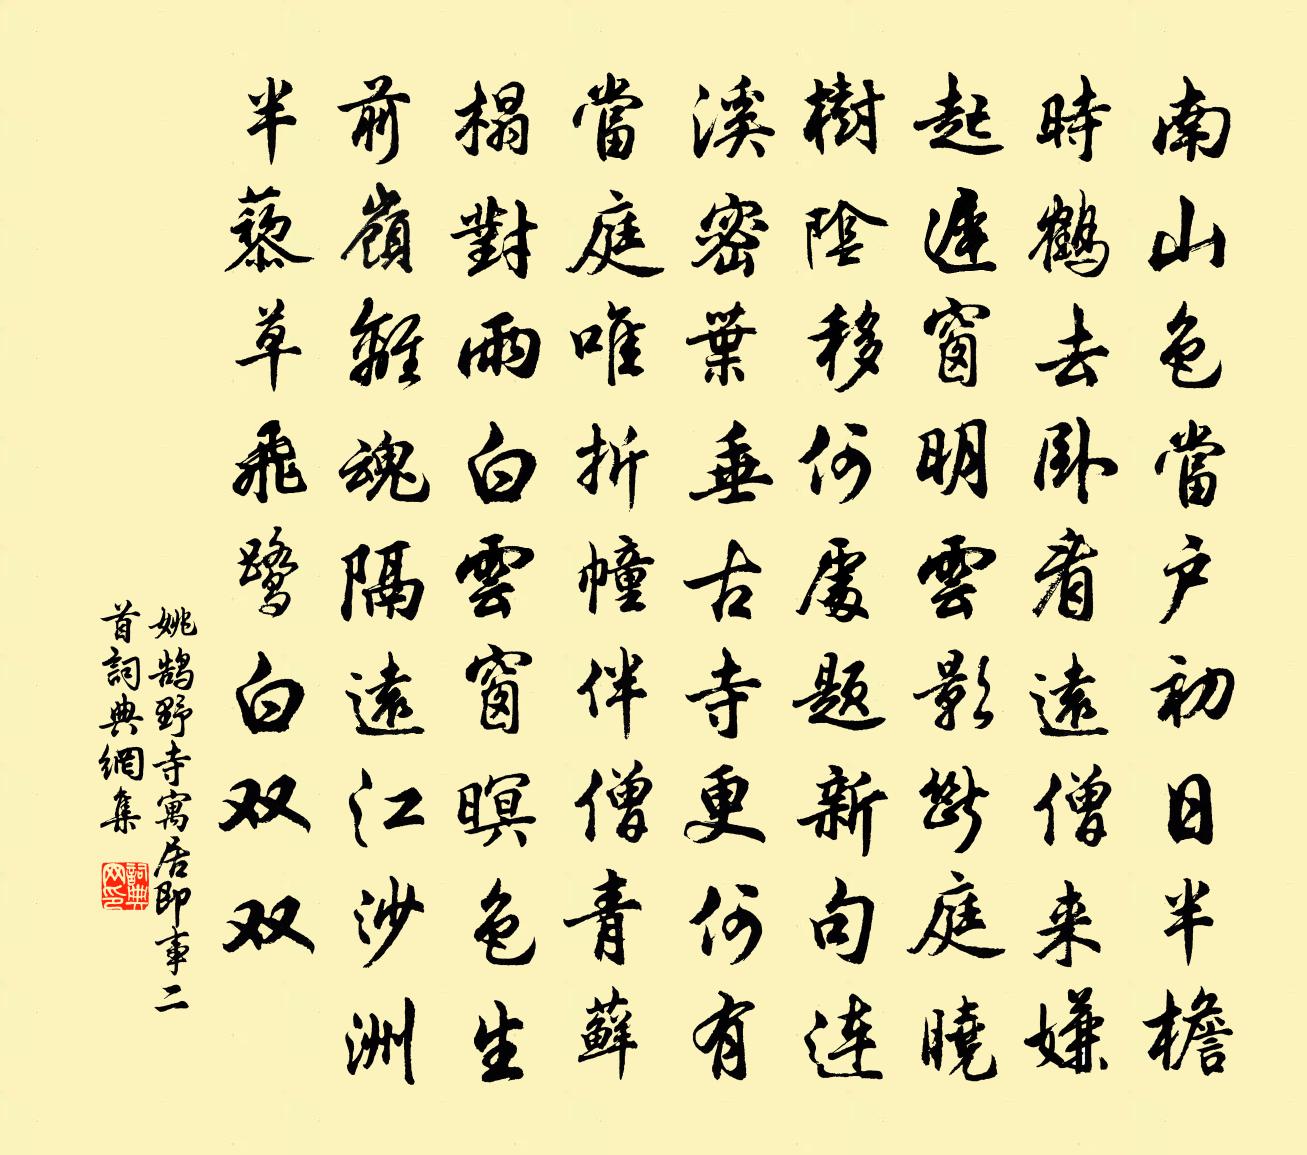 南山色當户初日半檐
時鶴去卧看遠僧来嫌
起遲窗明雲影斷庭曉
樹陰移何處題新句連
溪密葉垂古寺更何有
當庭唯折幢伴僧青蘚
榻對雨白雲窗暝色生
前嶺離魂隔遠江沙洲
半藜草飛鷺白双双
姚鵠野寺寓居即事二
首詞典網集
詞典
网印